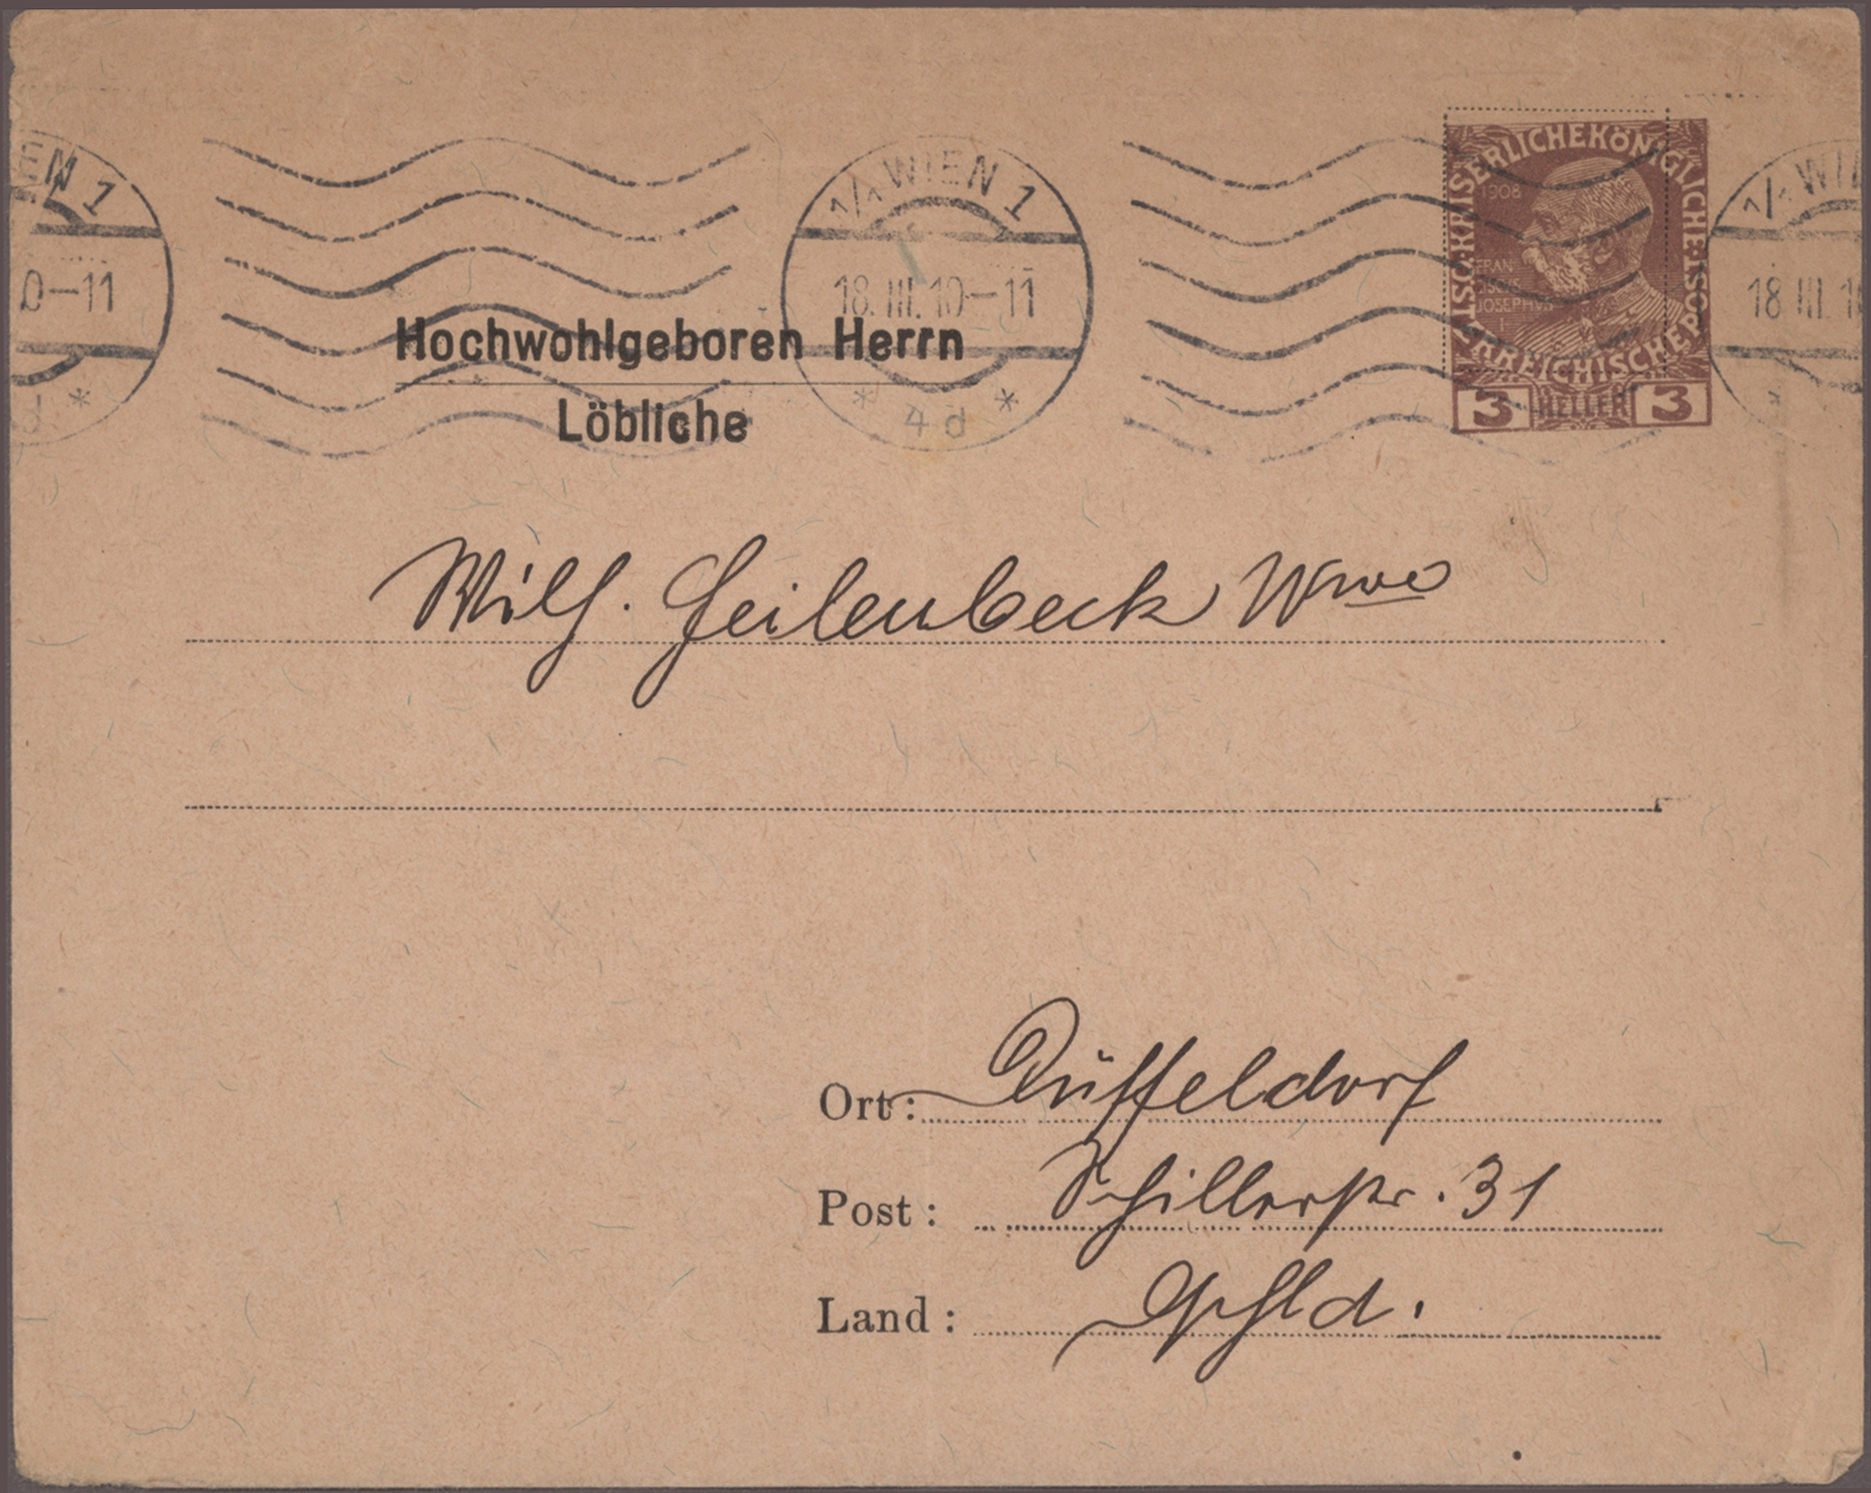 EN 1
0-11
d *
1/1 WIEN 1
18.III.10-11
* 4d *
KAISERLICHE KÖNIGLICHE ÖSTERREICHISCHE POST
1908
FRAN
CISCVS
IOSEPHVS
I
3 HELLER 3
1/1 WI
18 III 1
Hochwohlgeboren Herrn
Löbliche
Wilh. Heilenbeck Wwe
Ort: Düsseldorf
Post: Schillerstr. 31
Land: